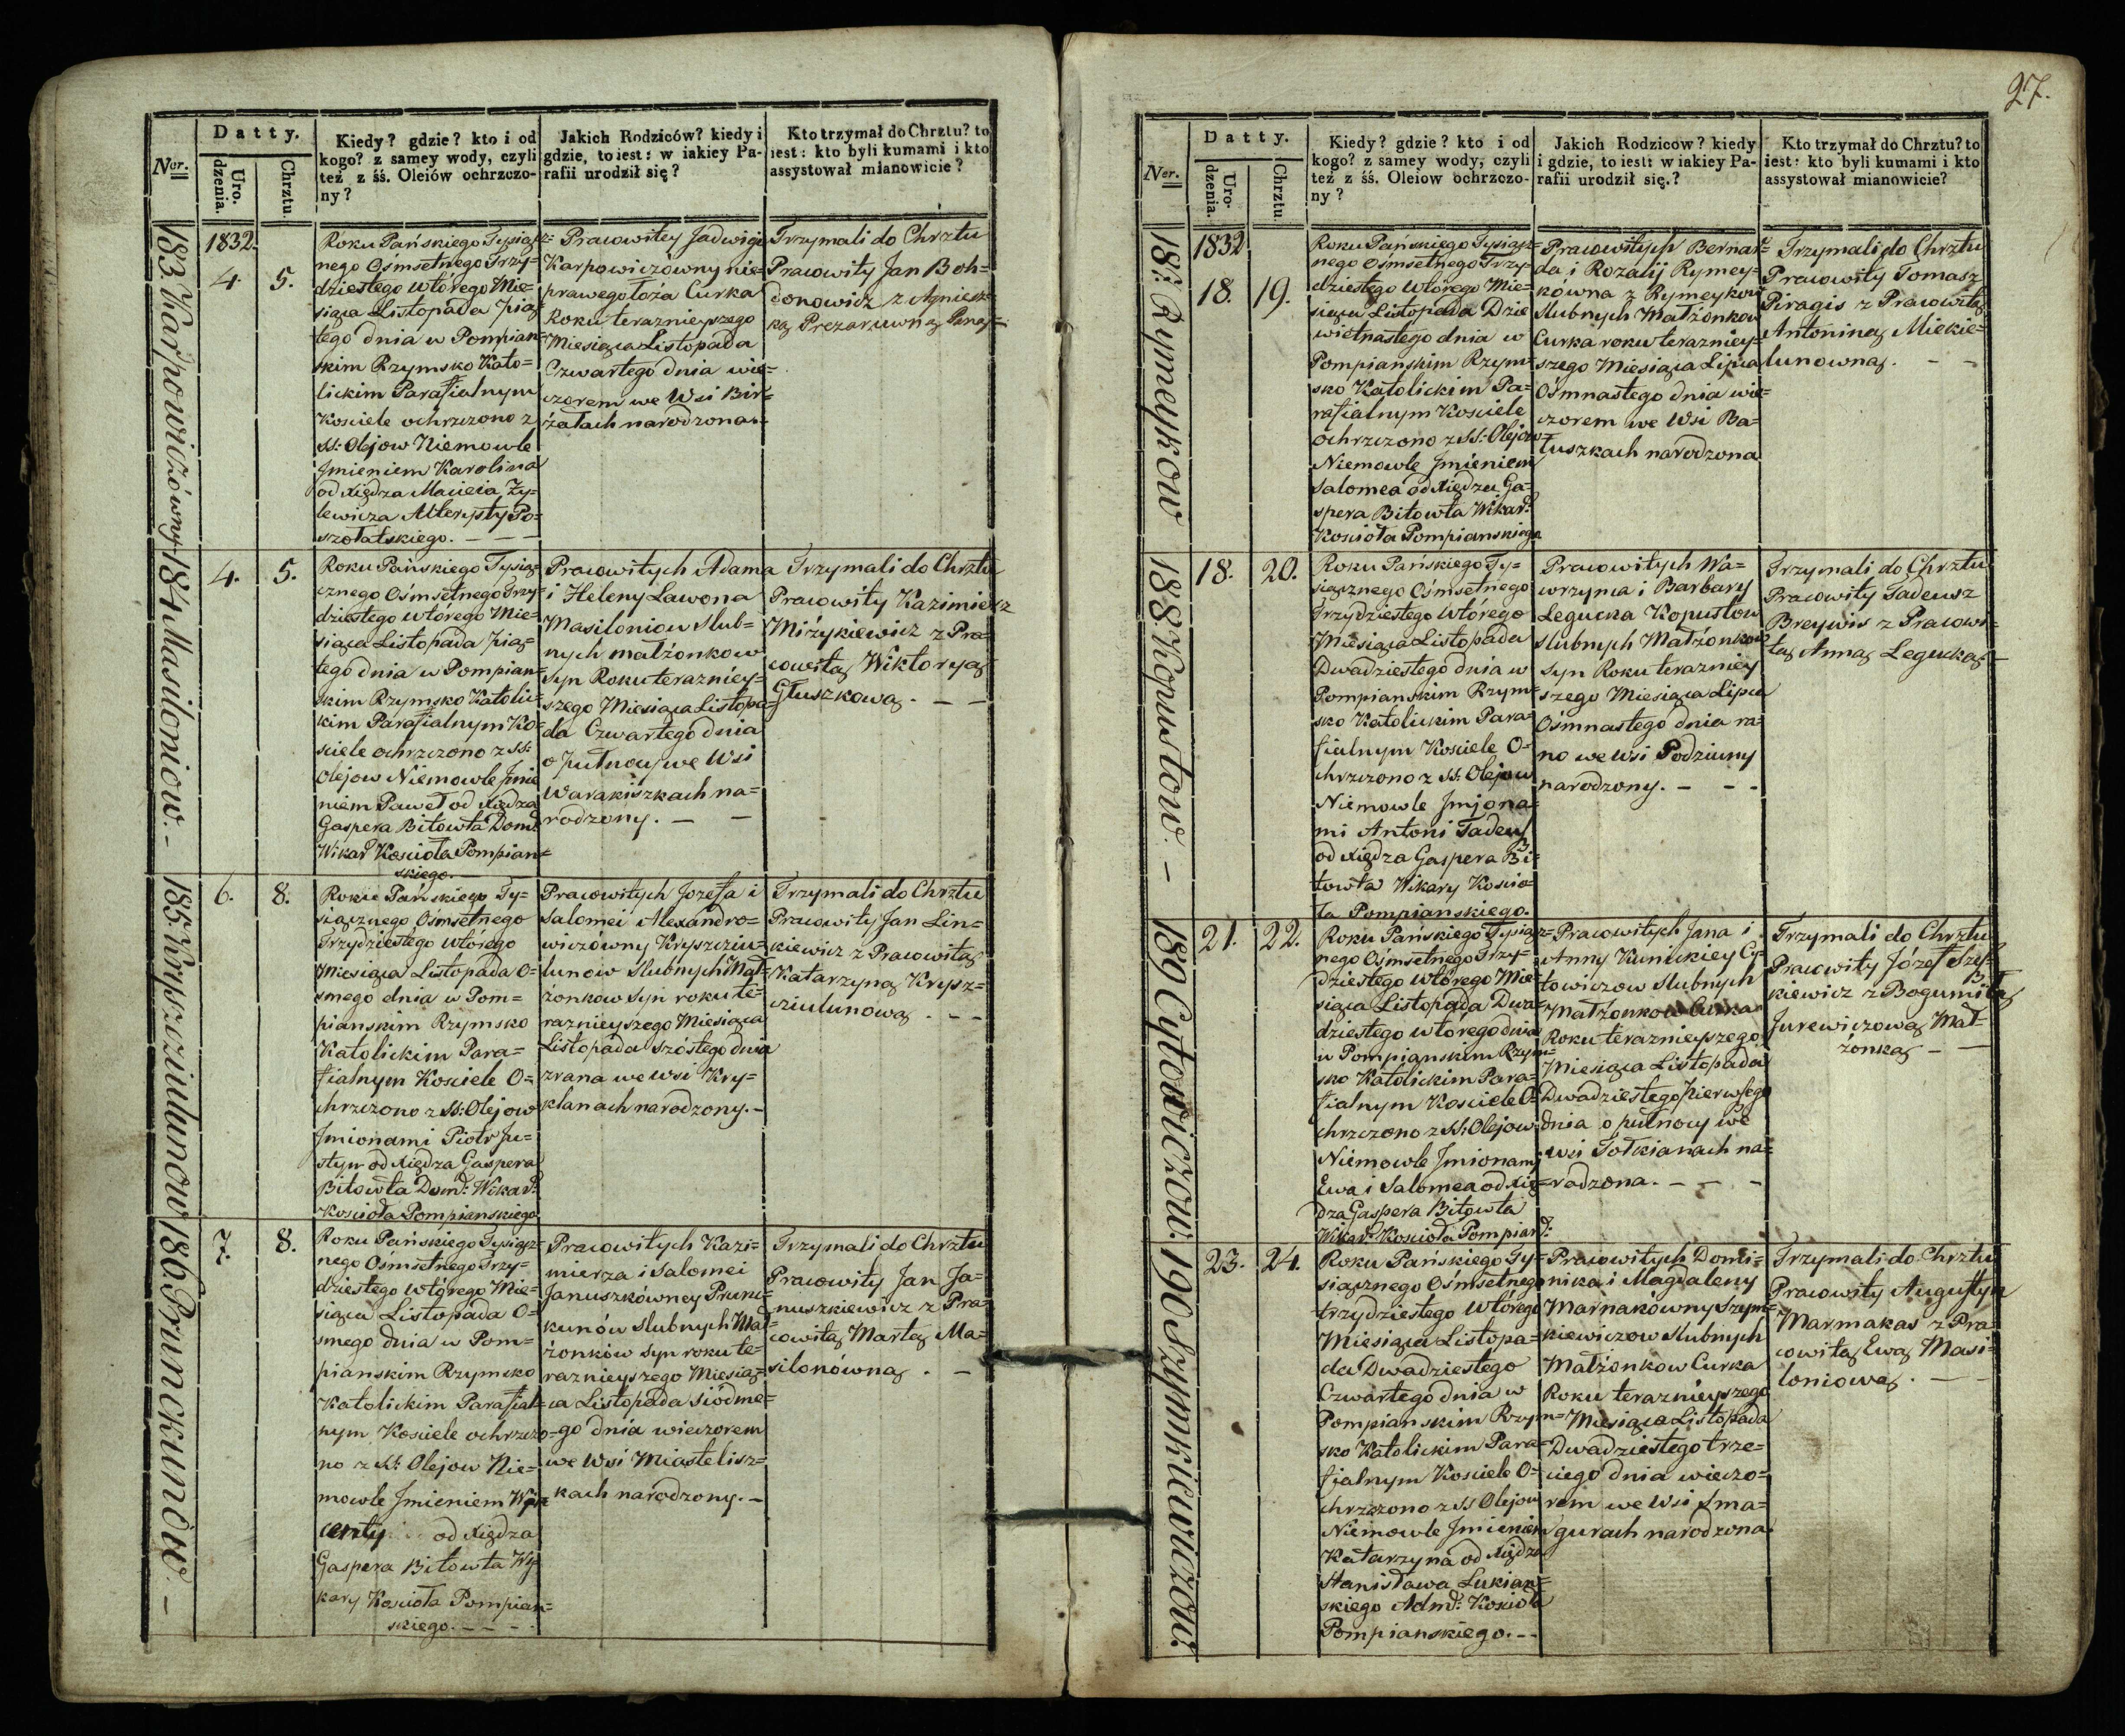 Datty.
Ner.
Uro.
dzenia.
Chrztu.
Kiedy? gdzie? kto i od
kogo? z samey wody, czyli
też z śś. Oleiów ochrzczo-
ny?
Jakich Rodziców? kiedy i
gdzie, to iest: w iakiey Pa-
rafii urodził się?
Kto trzymał do Chrztu? to
iest: kto byli kumami i kto
assystował mianowicie?
183 Karpowiczówny
1832.
4.
5.
Roku Pańskiego Tysiącz=
nego Ośmsetnego Trzy=
dziestego wtórego Mie=
siąca Listopada pią=
tego dnia w Pompian=
skim Rzymsko Kato=
lickim Parafialnym
Kosciele ochrzczono z
SS: Olejow Niemowle
Jmieniem Karolina
od Xiędza Macieia Ży=
lewicza Alterysty Po=
szołatskiego. — — —
Pracowitey Jadwigi
Karpowiczówny nie=
prawego łoża Curka
Roku teraznieyszego
Miesiąca Listopada
Czwartego dnia wie=
czorem we Wsi Bir=
żałach narodzona.
Trzymali do Chrztu
Pracowity Jan Boh=
donowicz z Agniesz=
ką
184 Masiloniow. -
4.
5.
Roku Pańskiego Tysią=
cznego Ośmsetnego Trzy=
dziestego wtórego Mie=
siąca Listopada pią=
tego dnia w Pompian=
skim Rzymsko Katolic=
kim Parafialnym Ko=
sciele ochrzczono z SS:
Olejow Niemowle Jmie
niem Paweł od Xiędza
Gaspera Bitowta Domi:
Wikar: Kościoła Pompian=
skiego.
Pracowitych Adama
i Heleny Lawona
Masiloniow Slub=
nych małżonkow
Syn Roku terazniey=
szego Miesiąca Listopa=
da Czwartego dnia
o pułnocy we Wsi
Warakiszkach na=
rodzony. — —
Trzymali do Chrztu
Pracowity Kazimierz
Miżykiewicz z Pra=
cowitą Wiktoryą
Głuszkową. — —
185 Kryszciulunow
6.
8.
Roku Pańskiego Ty=
siącznego Ośmsetnego
Trzydziestego wtórego
Miesiąca Listopada O=
smego dnia w Pom=
pianskim Rzymsko
Katolickim Para=
fialnym Kosciele O=
chrzczono z SS: Olejow
Jmionami Piotr Ju=
styn od Xiędza Gaspera
Bitowta Dom: Wikar:
Kościoła Pompianskiego
Pracowitych Jozefa i
Salomei Alexandro=
wiczówny Kryszciu=
lunow Slubnych Mał=
żonkow Syn roku te=
raznieyszego Miesiąca
Listopada szóstego dnia
zrana we wsi Kry=
klanach narodzony. -
Trzymali do Chrztu
Pracowity Jan Lin=
kiewicz z Pracowitą
Katarzyną Krysz=
ciulunową. — —
186 Prunckunów. -
7.
8.
Roku Pańskiego Tysiącz=
nego Ośmsetnego Trzy=
dziestego wtórego Mie=
siąca Listopada O=
smego dnia w Pom=
pianskim Rzymsko
Katolickim Parafial=
nym Kosciele ochrzczo=
no z SS: Olejow Nie=
mowle Jmieniem Win=
centy od Xiędza
Gaspera Bitowta Wi=
kary Kościoła Pompian=
skiego. — — —
Pracowitych Kazi=
mierza i Salomei
Januszkówney Prunc=
kunów slubnych Mał=
żonków Syn roku te=
raznieyszego Miesią=
ca Listopada siódme=
go dnia wieczorem
we Wsi Miastelisz=
kach narodzony. -
Trzymali do Chrztu
Pracowity Jan Ja=
nuszkiewicz z Pra=
cowitą Martą Ma=
silonówną. —
27.
Datty.
Ner.
Uro-
dzenia.
Chrztu.
Kiedy? gdzie? kto i od
kogo? z samey wody, czyli
też z śś. Oleiow ochrzczo-
ny?
Jakich Rodzicow? kiedy
i gdzie, to iest: w iakiey Pa-
rafii urodził się.?
Kto trzymał do Chrztu? to
iest: kto byli kumami i kto
assystował mianowicie?
187 Rymeykow
1832
18.
19.
Roku Pańskiego Tysiącz=
nego Ośmsetnego Trzy=
dziestego wtórego Mie=
siąca Listopada Dzie
wietnastego dnia w
Pompianskim Rzym=
sko Katolickim Pa=
rafialnym Kosciele
ochrzczono z SS: Olejow
Niemowle Jmieniem
Salomea od Xiędza Ga=
spera Bitowta Wikar:
Kościoła Pompianskiego
Pracowitych Bernar=
da i Rozalij Rymey=
kówna z Rymeykow
Slubnych Małżonkow
Curka roku terazniey=
szego Miesiąca Lipca
Ośmnastego dnia wie=
czorem we Wsi Ba=
łuszkach narodzona
Trzymali do Chrztu
Pracowity Tomasz
Piragis z Pracowitą
Antoniną Mickie=
lunowną. — —
188 Kopustow. -
18.
20.
Roku Pańskiego Ty=
siącznego Ośmsetnego
Trzydziestego wtórego
Miesiąca Listopada
Dwadziestego dnia w
Pompianskim Rzym=
sko Katolickim Para=
fialnym Kosciele O=
chrzczono z SS: Olejow
Niemowle Jmjona=
mi Antoni Tadeusz
od Xiędza Gaspera Bi=
towta Wikary Koscio=
ła Pompianskiego.
Pracowitych Wa=
wrzynca i Barbary
Legucka Kopustow
slubnych Małżonkow
Syn Roku terazniey
szego Miesiąca Lipca
Ośmnastego dnia ra=
no we wsi Podziuny
narodzony. — — -
Trzymali do Chrztu
Pracowity Tadeusz
Breywis z Pracowi=
tą Anną Legucką —
189 Cytowiczow.
21.
22.
Roku Pańskiego Tysiącz=
nego Ośmsetnego Trzy=
dziestego wtórego Mie=
siąca Listopada Dwa=
dziestego wtórego dnia
w Pompianskim Rzym=
sko Katolickim Para=
fialnym Kosciele O=
chrzczono z SS: Olejow
Niemowle Jmionami
Ewa i Salomea od Xię=
dza Gaspera Bitowta
Wikar: Kościoła Pompian:
Pracowitych Jana i
Anny Kunickiey Cy=
towiczow slubnych
Małżonkow Curka
Roku teraznieyszego
Miesiąca Listopada
Dwadziestego pierwszego
dnia o pułnocy we
wsi Tołkianach na=
rodzona. — — —
Trzymali do Chrztu
Pracowity Józef Szesz=
kiewicz z Bogumiłą
Jurewiczową Mał=
żonką — —
190 Szymkiewiczow.
23.
24.
Roku Pańskiego Ty=
siącznego Ośmsetnego
trzydziestego wtórego
Miesiąca Listopa=
da Dwadziestego
Czwartego dnia w
Pompianskim Rzym=
sko Katolickim Para=
fialnym Kosciele O=
chrzczono z SS Olejow
Niemowle Jmieniem
Katarzyna od Xiędza
Stanisława Lukian=
skiego Adm: Kościoła
Pompianskiego. —
Pracowitych Domi=
nika i Magdaleny
Marnakówny Szym=
kiewiczow slubnych
Małżonkow Curka
Roku teraznieyszego
Miesiąca Listopada
Dwadziestego trze=
ciego dnia wieczo=
rem we Wsi Sma=
gurach narodzona
Trzymali do Chrztu
Pracowity Augustyn
Marmakas z Pra=
cowitą Ewą Masi=
loniową. — —